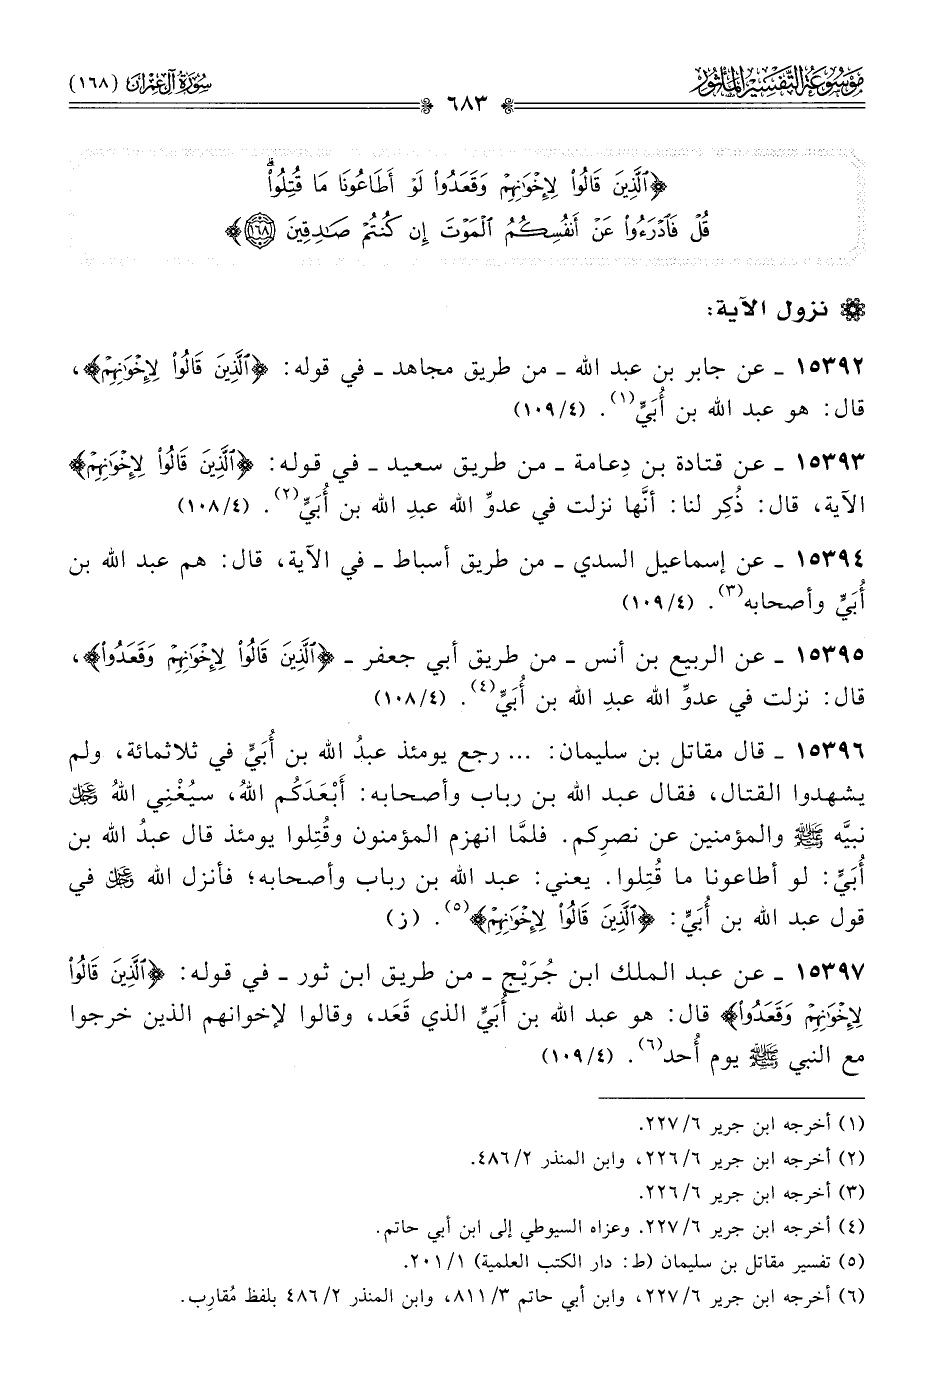 موسوعة التفسير المأثور
سورة آل عمران (١٦٨)
٦٨٣
﴿ٱلَّذِينَ قَالُوا۟ لِإِخْوَٰنِهِمْ وَقَعَدُوا۟ لَوْ أَطَاعُونَا مَا قُتِلُوا۟ۗ
قُلْ فَٱدْرَءُوا۟ عَنْ أَنفُسِكُمُ ٱلْمَوْتَ إِن كُنتُمْ صَٰدِقِينَ ١٦٨﴾
نزول الآية:
١٥٣٩٢ ـ عن جابر بن عبد الله ـ من طريق مجاهد ـ في قوله: ﴿ٱلَّذِينَ قَالُوا۟ لِإِخْوَٰنِهِمْ﴾،
قال: هو عبد الله بن أُبَيٍّ(١). (١٠٩/٤)
١٥٣٩٣ ـ عن قتادة بن دِعامة ـ من طريق سعيد ـ في قوله: ﴿ٱلَّذِينَ قَالُوا۟ لِإِخْوَٰنِهِمْ﴾
الآية، قال: ذُكِر لنا: أنَّها نزلت في عدوِّ الله عبدِ الله بن أُبَيٍّ(٢). (١٠٨/٤)
١٥٣٩٤ ـ عن إسماعيل السدي ـ من طريق أسباط ـ في الآية، قال: هم عبد الله بن
أُبَيٍّ وأصحابه(٣). (١٠٩/٤)
١٥٣٩٥ ـ عن الربيع بن أنس ـ من طريق أبي جعفر ـ ﴿ٱلَّذِينَ قَالُوا۟ لِإِخْوَٰنِهِمْ وَقَعَدُوا۟﴾،
قال: نزلت في عدوِّ الله عبدِ الله بن أُبَيٍّ(٤). (١٠٨/٤)
١٥٣٩٦ ـ قال مقاتل بن سليمان: ... رجع يومئذ عبدُ الله بن أُبَيٍّ في ثلاثمائة، ولم
يشهدوا القتال، فقال عبد الله بن رباب وأصحابه: أَبْعَدَكُم اللهُ، سيُغْنِي اللهُ ﷿
نبيَّه ﷺ والمؤمنين عن نصرِكم. فلمَّا انهزم المؤمنون وقُتِلوا يومئذ قال عبدُ الله بن
أُبَيٍّ: لو أطاعونا ما قُتِلوا. يعني: عبد الله بن رباب وأصحابه؛ فأنزل الله ﷿ في
قول عبد الله بن أُبَيٍّ: ﴿ٱلَّذِينَ قَالُوا۟ لِإِخْوَٰنِهِمْ﴾(٥). (ز)
١٥٣٩٧ ـ عن عبد الملك ابن جُرَيْج ـ من طريق ابن ثور ـ في قوله: ﴿ٱلَّذِينَ قَالُوا۟
لِإِخْوَٰنِهِمْ وَقَعَدُوا۟﴾ قال: هو عبد الله بن أُبَيٍّ الذي قَعَد، وقالوا لإخوانهم الذين خرجوا
مع النبي ﷺ يوم أُحد(٦). (١٠٩/٤)
(١) أخرجه ابن جرير ٢٢٧/٦.
(٢) أخرجه ابن جرير ٢٢٦/٦، وابن المنذر ٤٨٦/٢.
(٣) أخرجه ابن جرير ٢٢٦/٦.
(٤) أخرجه ابن جرير ٢٢٧/٦. وعزاه السيوطي إلى ابن أبي حاتم.
(٥) تفسير مقاتل بن سليمان (ط: دار الكتب العلمية) ٢٠١/١.
(٦) أخرجه ابن جرير ٢٢٧/٦، وابن أبي حاتم ٨١١/٣، وابن المنذر ٤٨٦/٢ بلفظ مُقارِب.